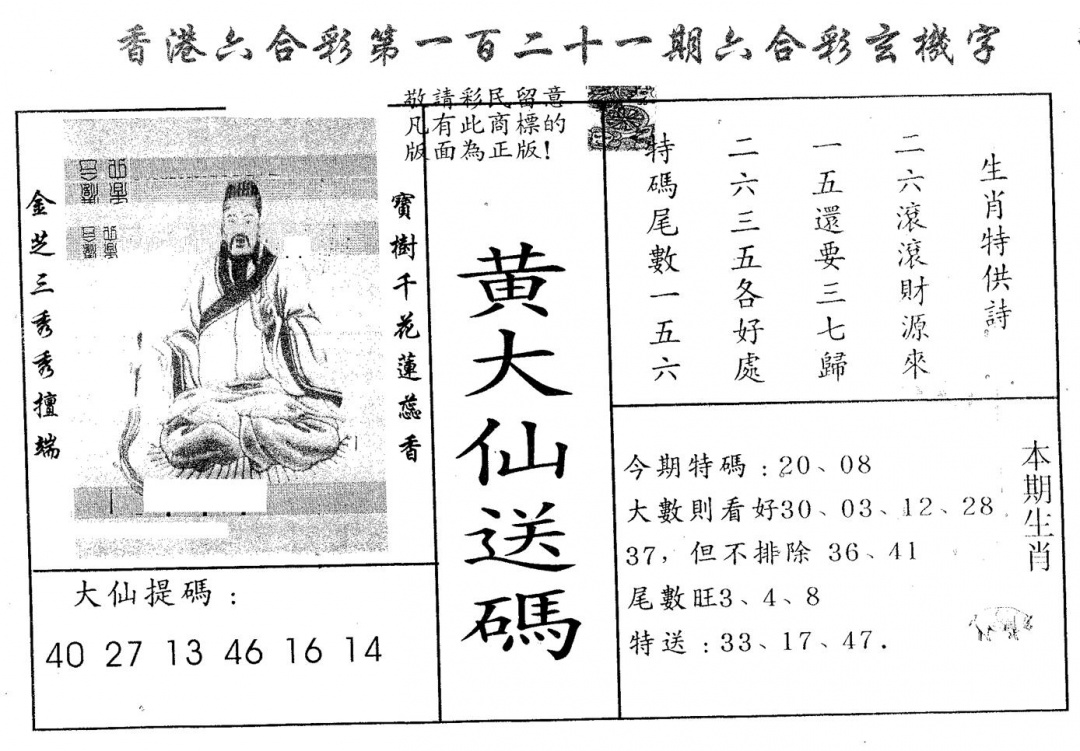 香港六合彩第一百二十一期六合彩玄機字
敬請彩民留意
凡有此商標的
版面為正版!
寶樹千花蓮蕊香
金芝三秀秀擅端
大仙提碼:
40 27 13 46 16 14
黄大仙送碼
生肖特供詩
二六滾滾財源來
一五還要三七歸
二六三五各好處
特碼尾數一五六
本期生肖
今期特碼:20、08
大數則看好30、03、12、28
37,但不排除 36、41
尾數旺3、4、8
特送:33、17、47.